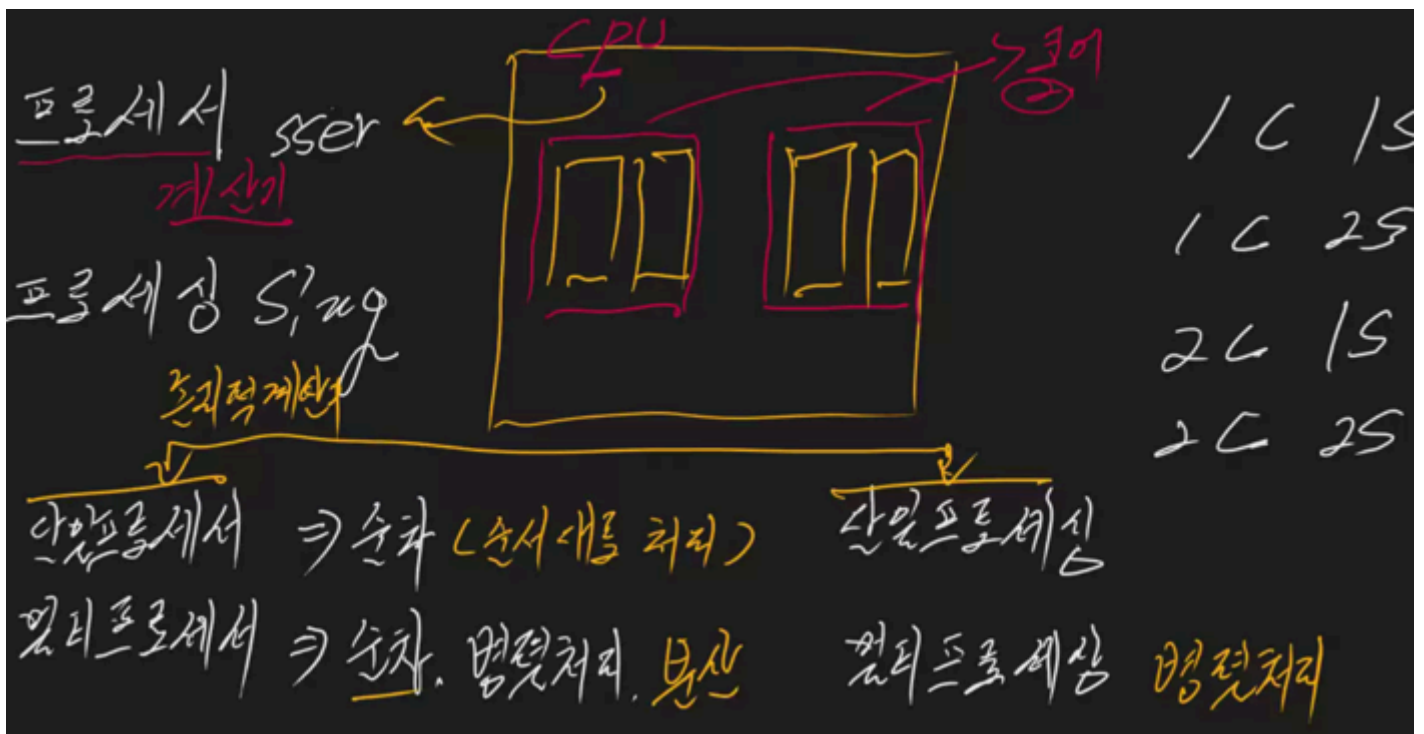 CPU
코어
②
프로세서 sser
계산기
프로세싱 Sing
논리적계산
1C 1S
1C 2S
2C 1S
2C 2S
단일프로세서 ⇒ 순차 (순서대로 처리)
단일프로세싱
멀티프로세서 ⇒ 순차. 병렬처리. 분산
멀티프로세싱 병렬처리